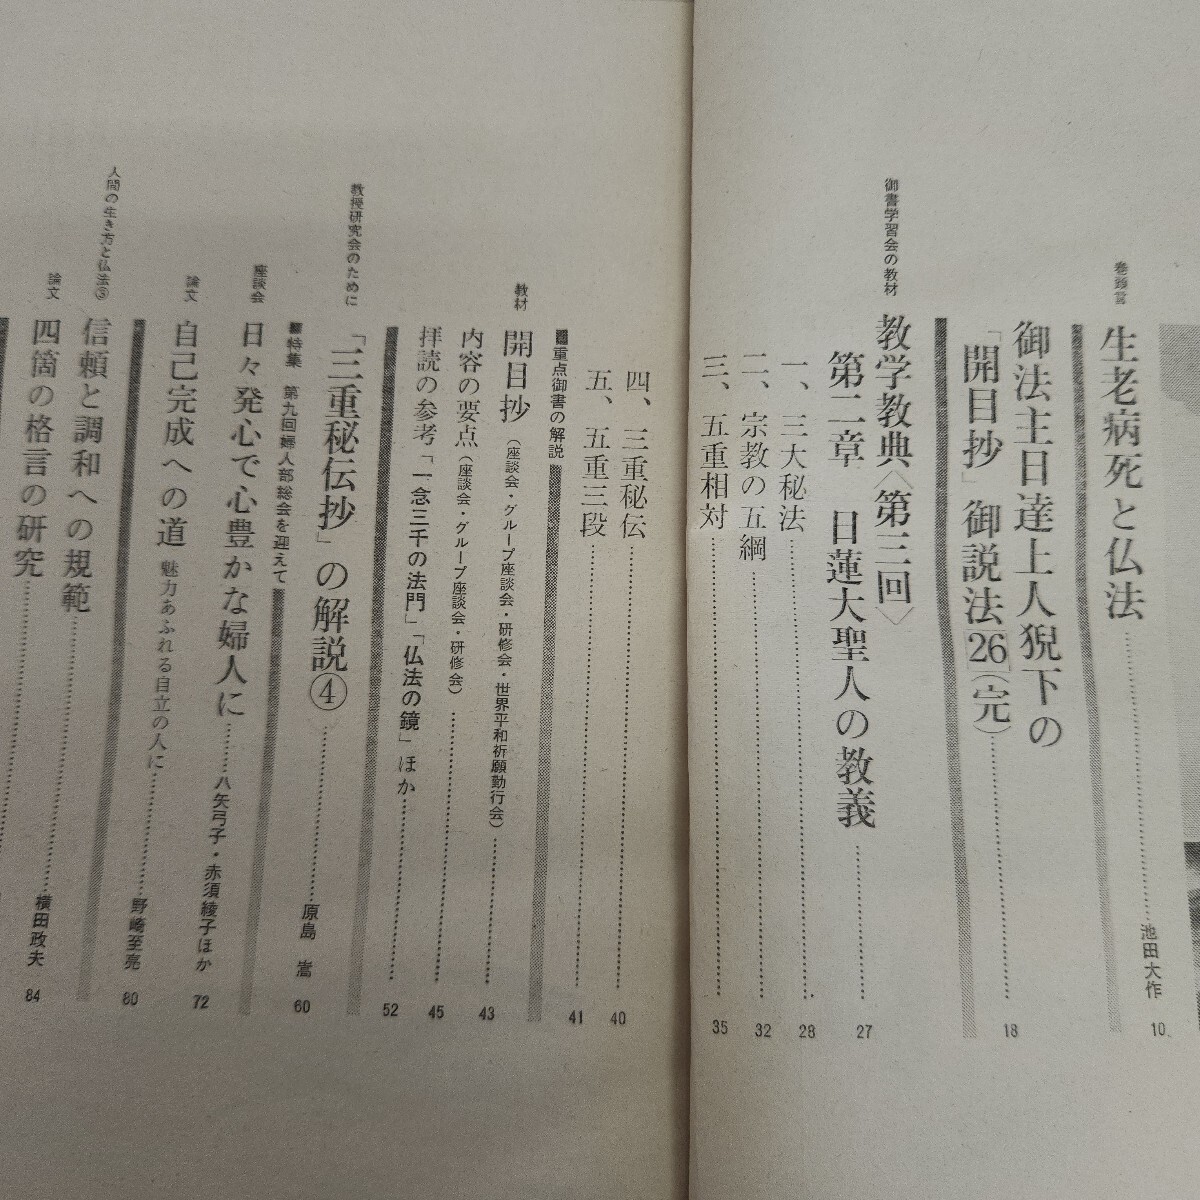 巻頭言
生老病死と仏法
池田大作
10
御法主日達上人猊下の
「開目抄」御説法[26](完)
18
御書学習会の教材
教学教典〈第三回〉
第二章 日蓮大聖人の教義
27
一、三大秘法
28
二、宗教の五綱
32
三、五重相対
35
四、三重秘伝
40
五、五重三段
41
■重点御書の解説
教材
開目抄(座談会・グループ座談会・研修会・世界平和祈願勤行会)
43
内容の要点(座談会・グループ座談会・研修会)
45
拝読の参考「一念三千の法門」「仏法の鏡」ほか
52
教授研究会のために
「三重秘伝抄」の解説④
原島 嵩
60
■特集 第九回婦人部総会を迎えて
座談会
日々発心で心豊かな婦人に
八矢弓子・赤須綾子ほか
72
論文
自己完成への道 魅力あふれる自立の人に
野崎至亮
80
人間の生き方と仏法③
信頼と調和への規範
横田政夫
84
論文
四箇の格言の研究